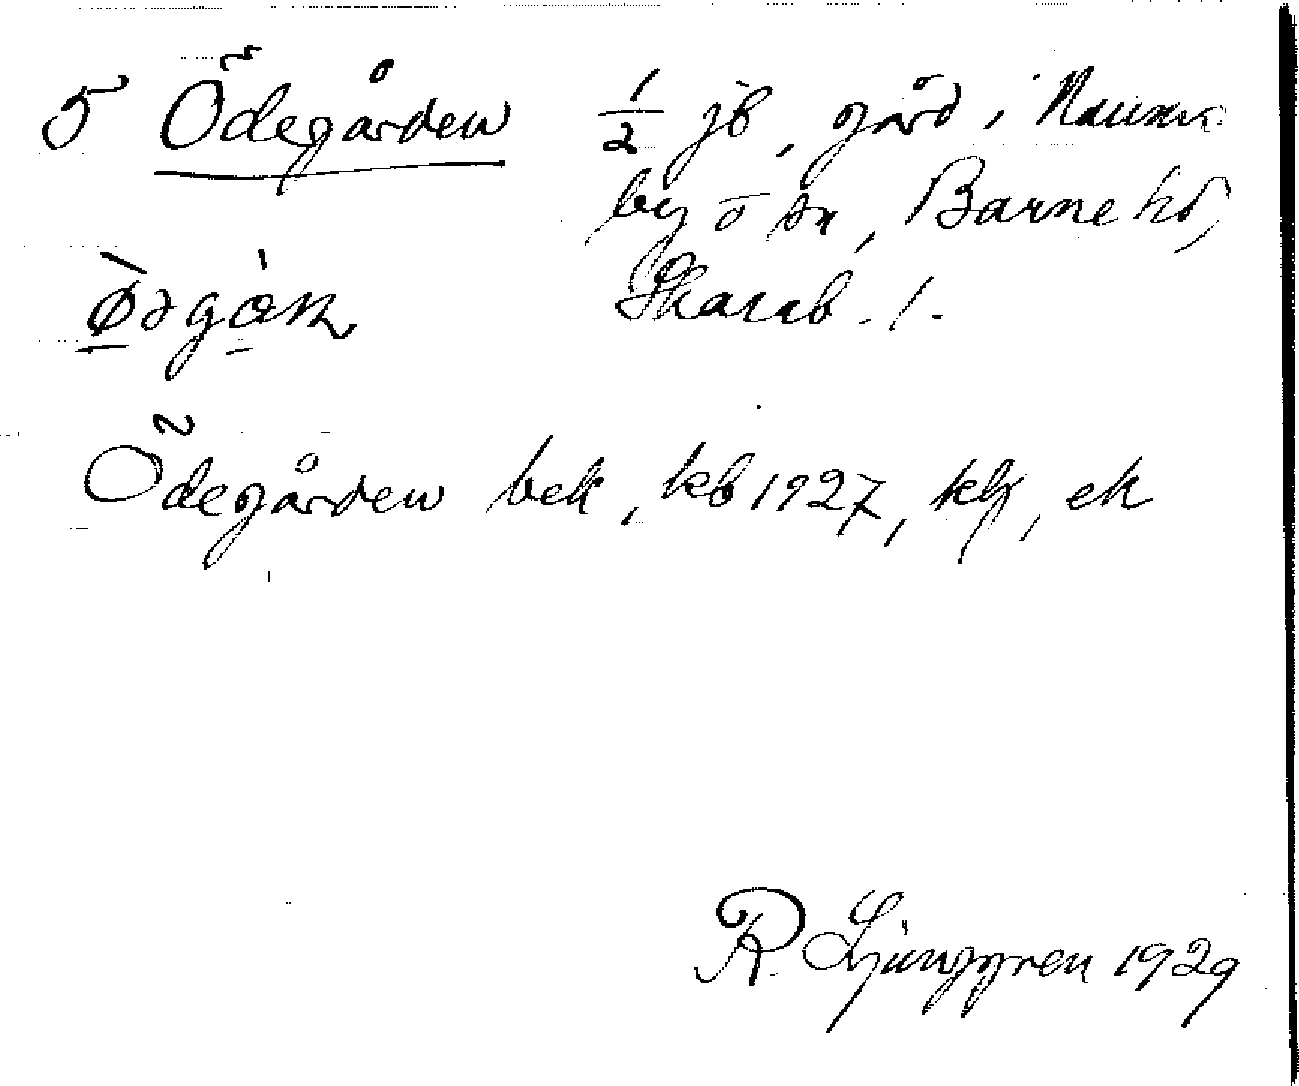 5 Ödegården ½ jb, gård i Naum
by o sn, Barne hd,
Skarab. l.
Ödegården bek, kb 1927, klj, ek
R. Ljunggren 1929